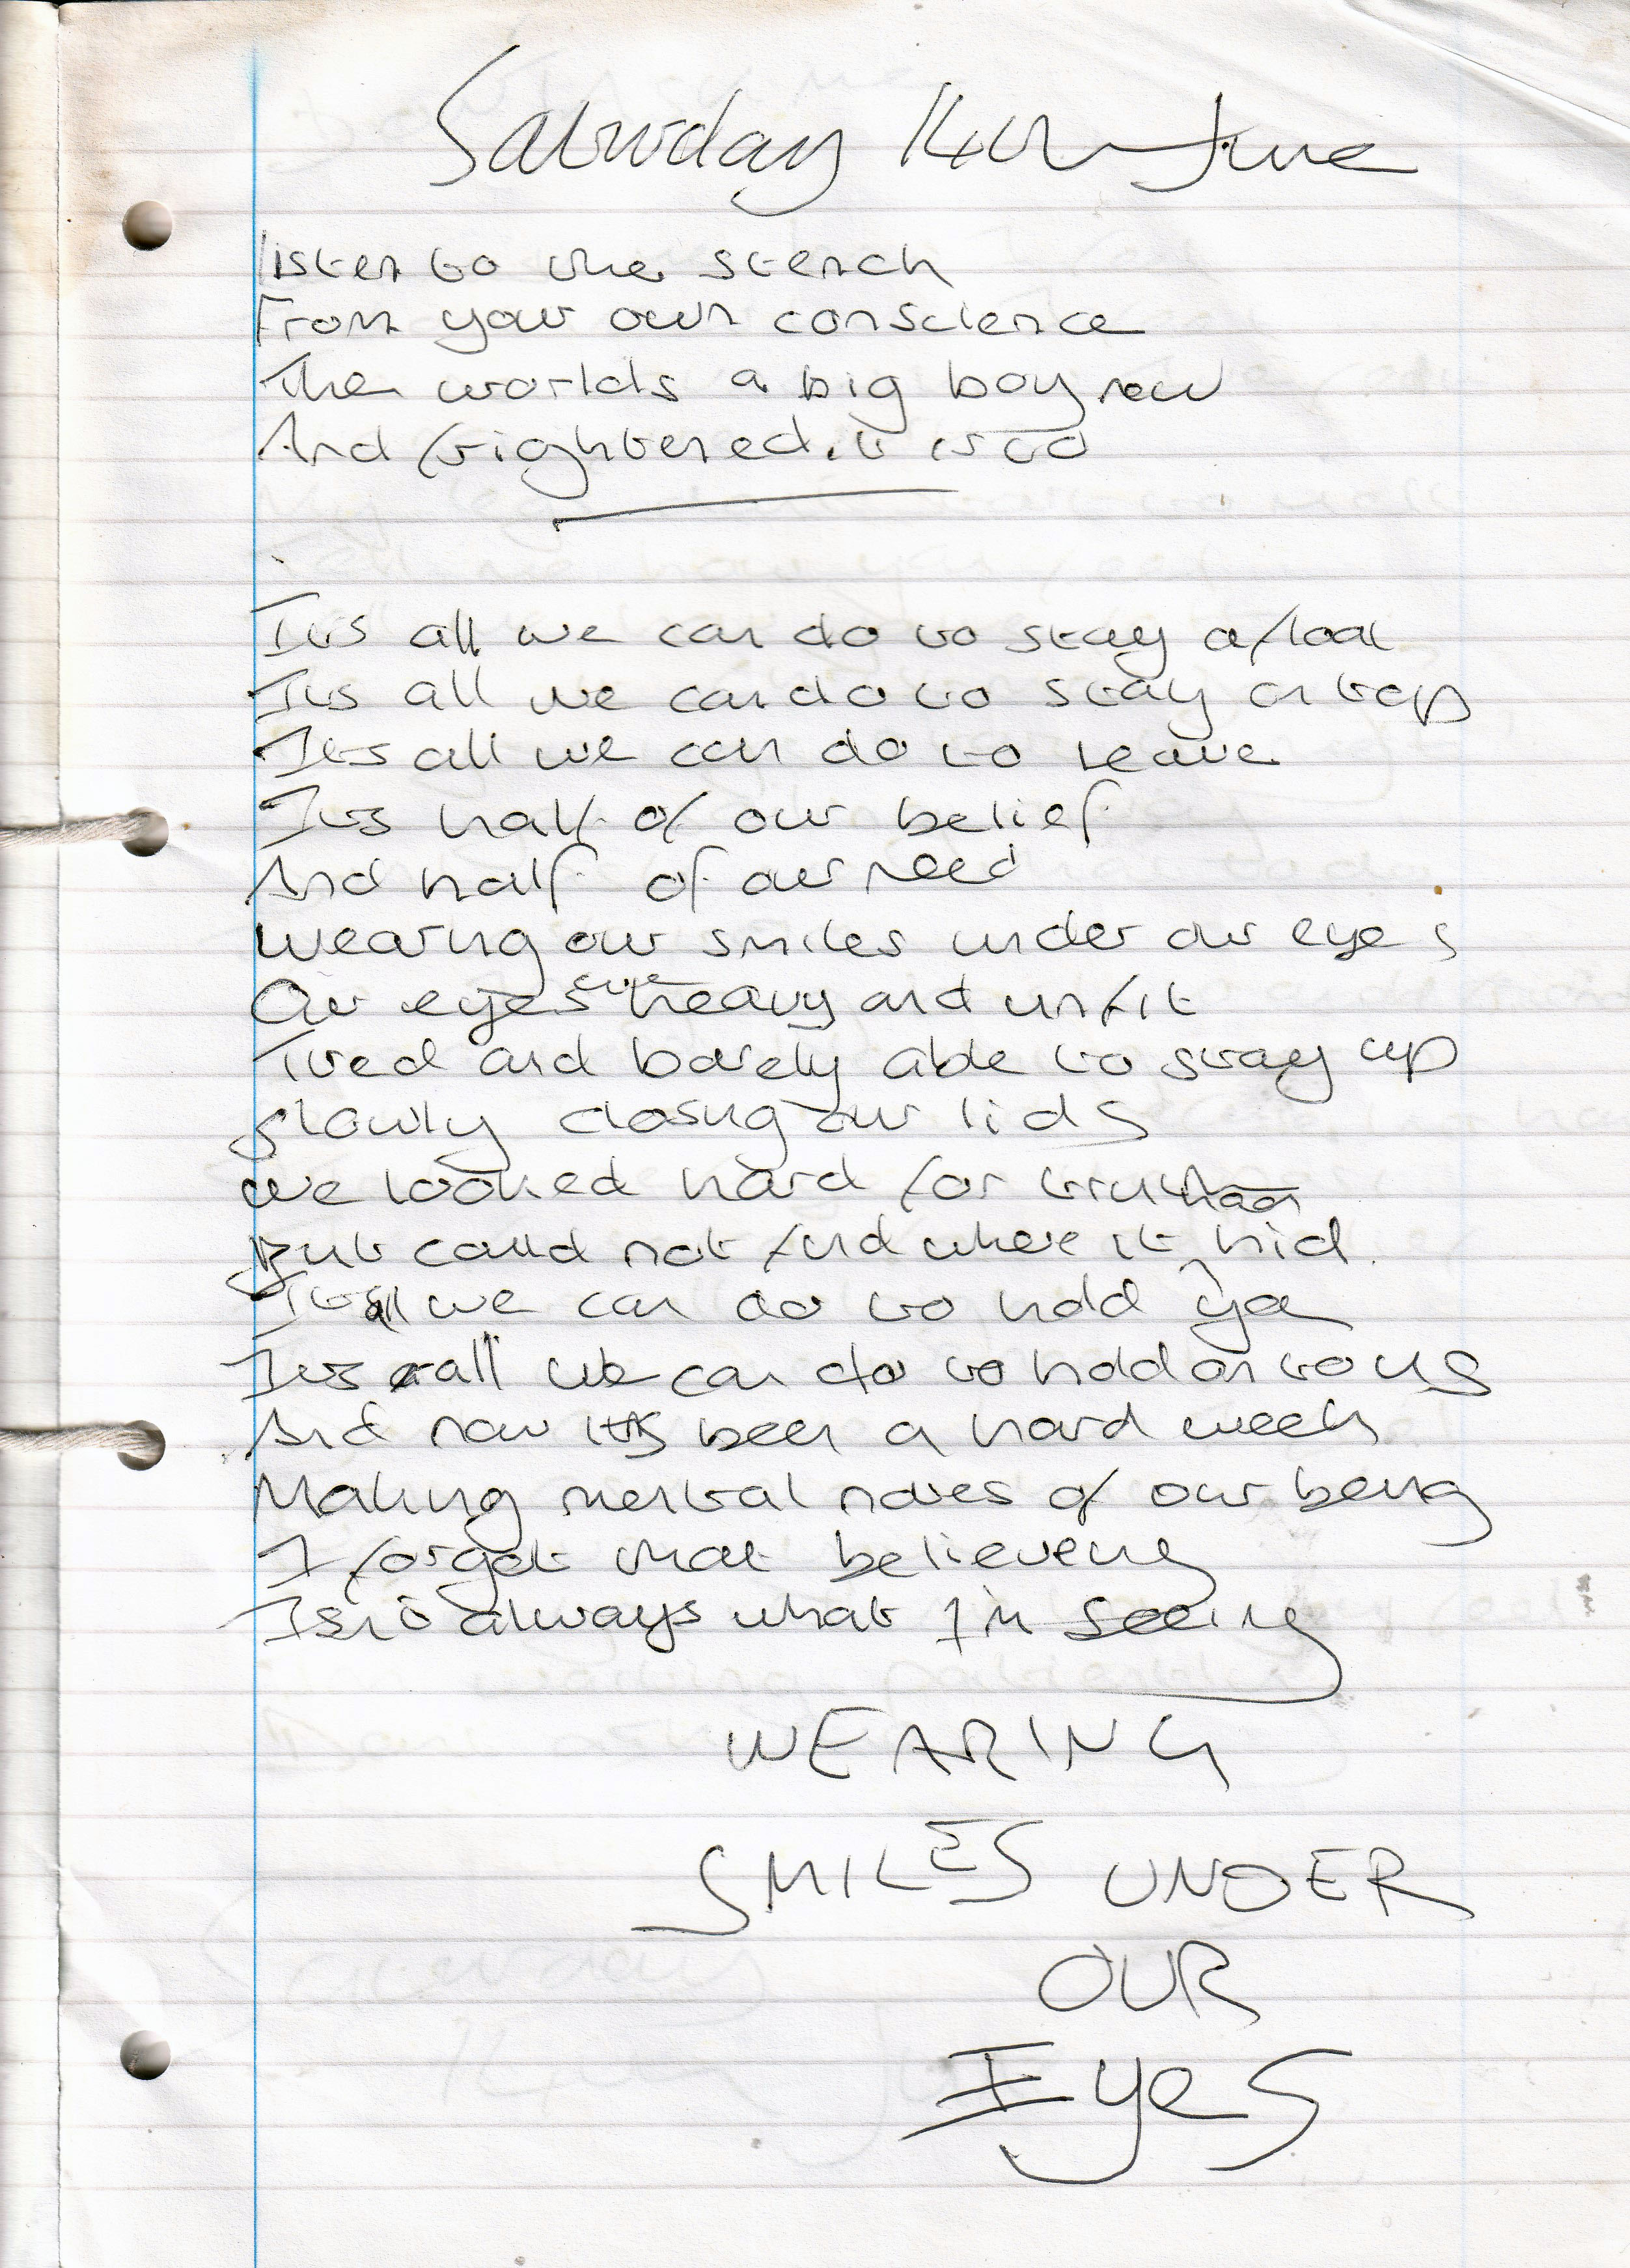 Saturday 14th June
listen to the stench
From your own conscience
The worlds a big boy now
And frightened it is to
Its all we can do to stay afloat
Its all we can do to stay on top
Its all we can do to leave
Its half of our belief
And half of our need
wearing our smiles under our eyes
Our eyes are heavy and unfit
Tired and barely able to stay up
slowly closing our lids
we looked hard for truth
But could not find where it hid
Its all we can do to hold ya
Its all we can do to hold on to us
And now its been a hard week
Making mental notes of our being
I forgot that believeing
Isnt always what I'm seeing
WEARING
SMILES UNDER
OUR
Eyes